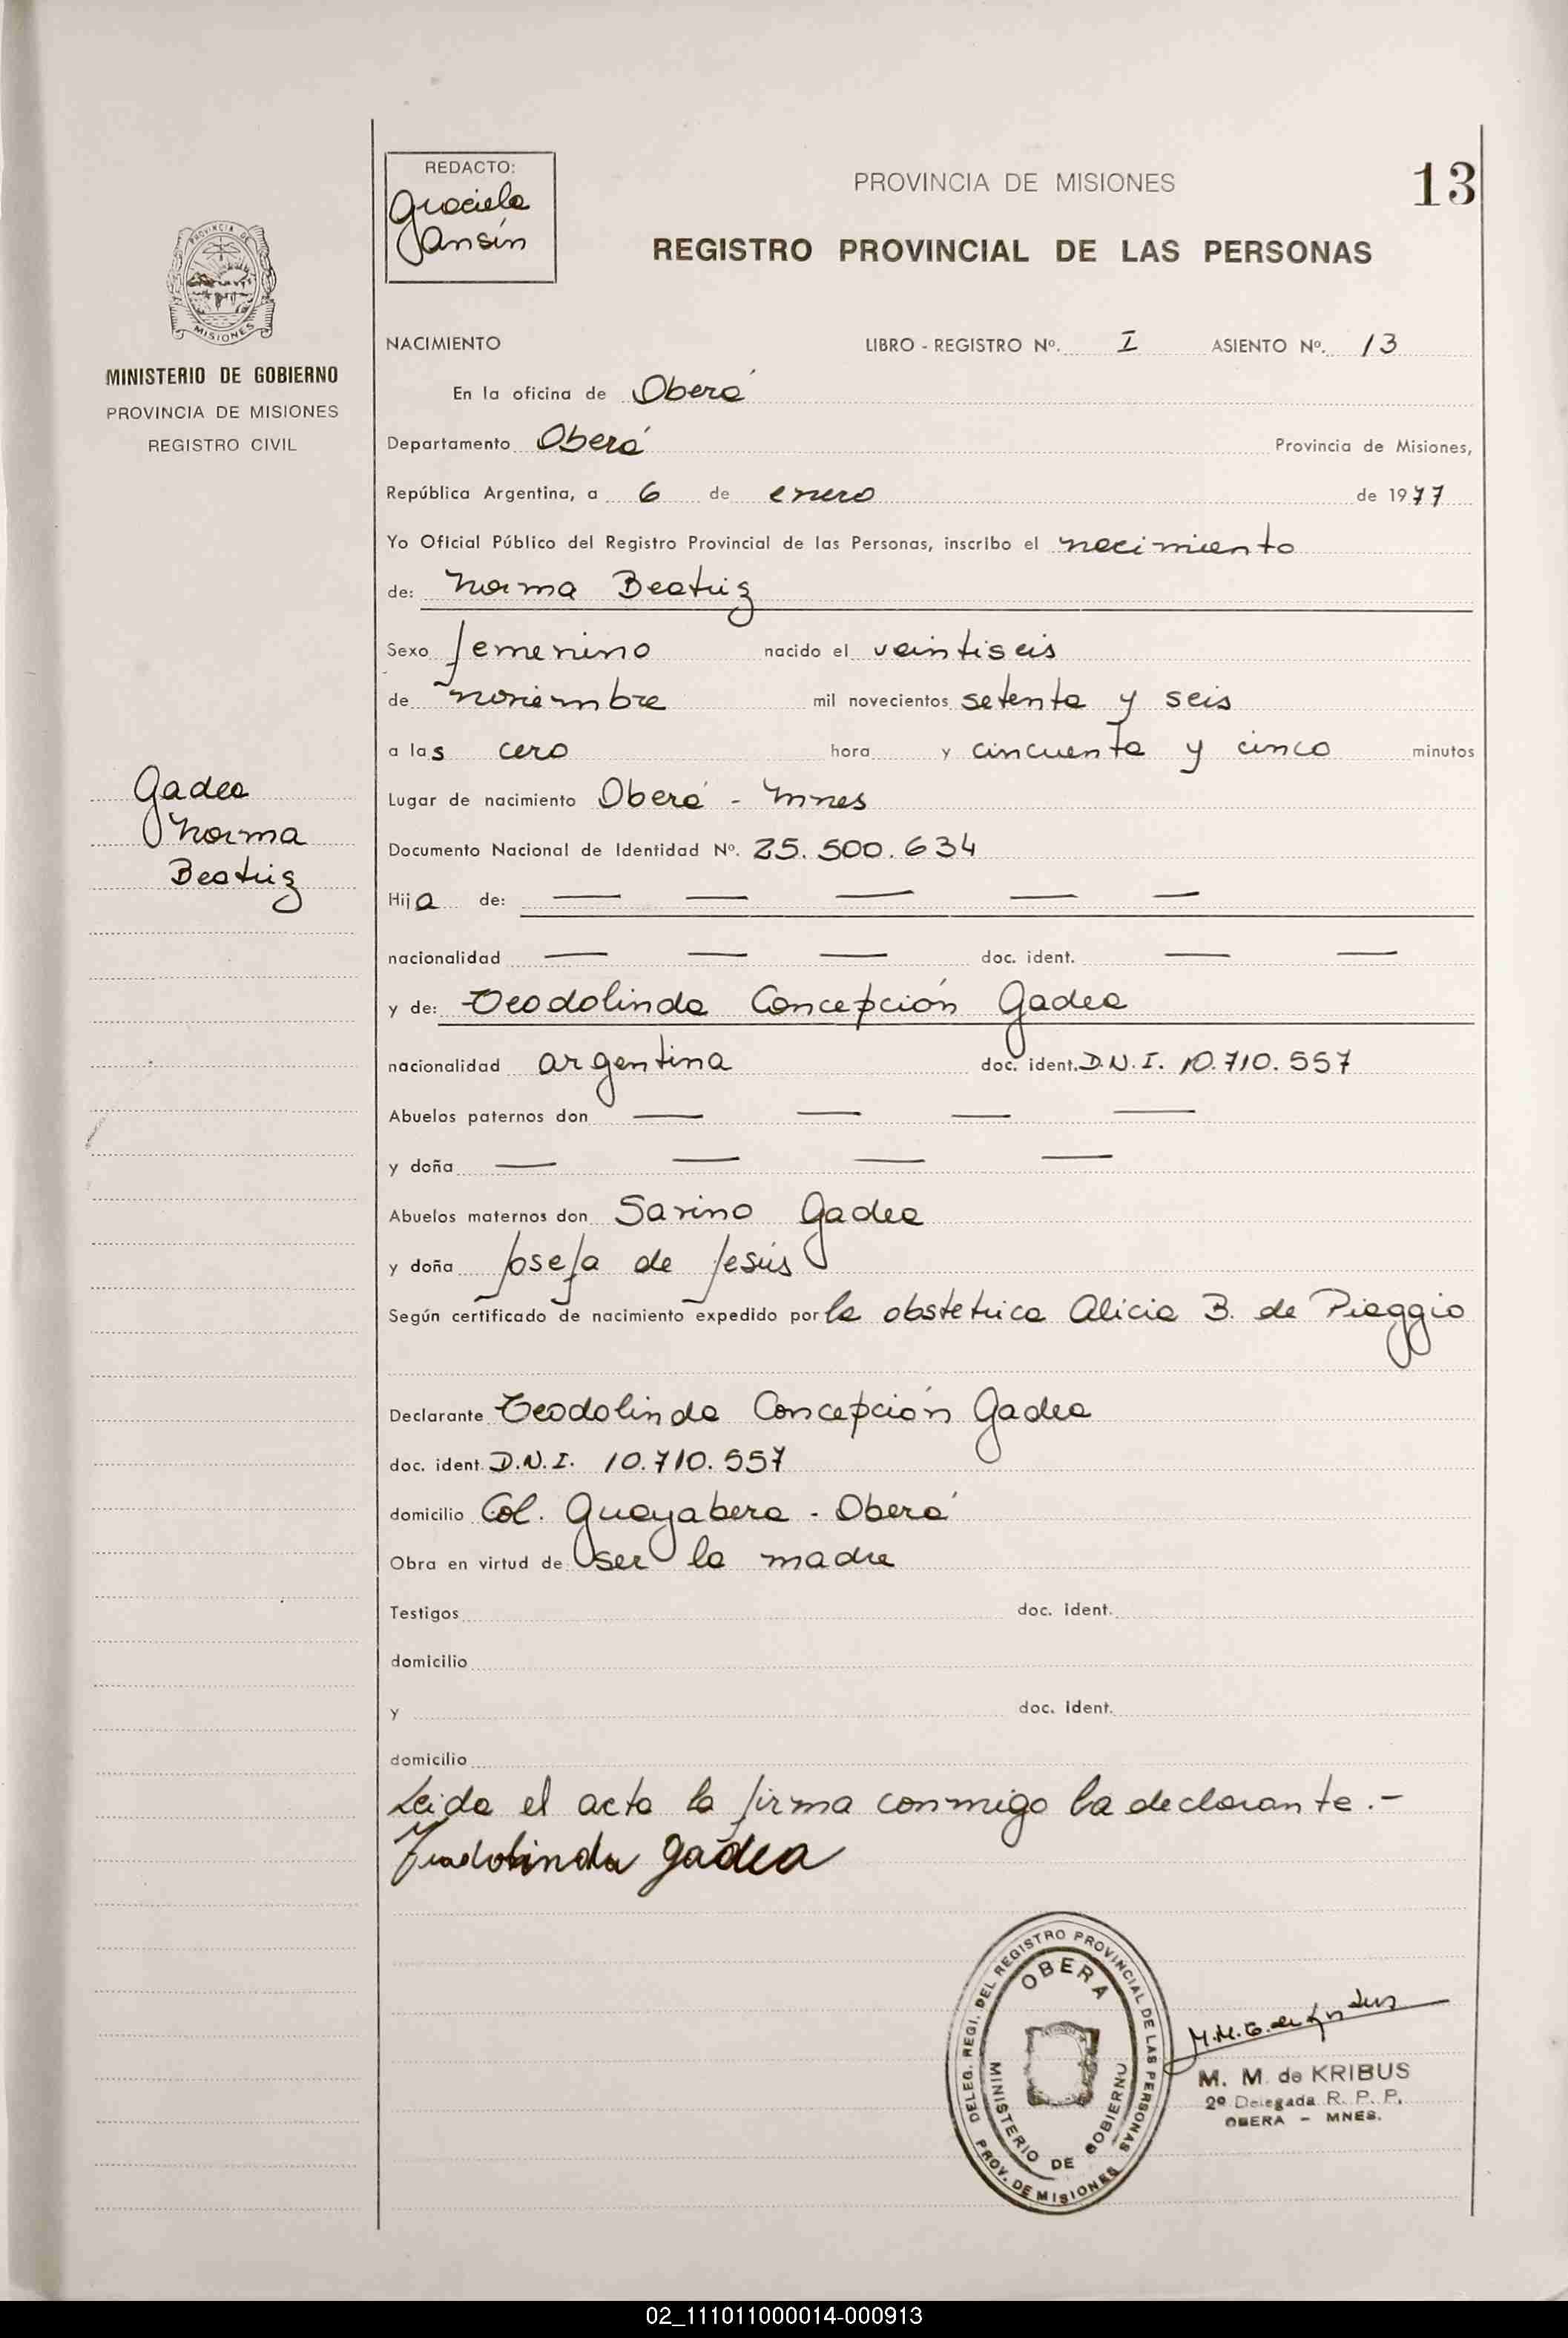 REDACTO:
Graciela
Jansín
PROVINCIA DE MISIONES
13
REGISTRO PROVINCIAL DE LAS PERSONAS
PROVINCIA DE
MISIONES
MINISTERIO DE GOBIERNO
PROVINCIA DE MISIONES
REGISTRO CIVIL
NACIMIENTO LIBRO - REGISTRO Nº. I ASIENTO Nº. 13
En la oficina de Oberá
Departamento Oberá Provincia de Misiones,
República Argentina, a 6 de enero de 1977
Yo Oficial Público del Registro Provincial de las Personas, inscribo el nacimiento
de: Norma Beatriz
Sexo femenino nacido el veintiseis
de noviembre mil novecientos setenta y seis
a las cero hora y cincuenta y cinco minutos
Gadea
Norma
Beatriz
Lugar de nacimiento Oberá - Mnes
Documento Nacional de Identidad Nº. 25.500.634
Hija de: — — — — —
nacionalidad — — — doc. ident. — —
y de: Teodolinda Concepción Gadea
nacionalidad argentina doc. ident. D.N.I. 10.710.557
Abuelos paternos don — — — —
y doña — — — —
Abuelos maternos don Savino Gadea
y doña Josefa de Jesús
Según certificado de nacimiento expedido por la obstetrica Alicia B. de Piaggio
Declarante Teodolinda Concepción Gadea
doc. ident. D.N.I. 10.710.557
domicilio Col. Guayabera - Oberá
Obra en virtud de ser la madre
Testigos doc. ident.
domicilio
y doc. ident.
domicilio
Leida el acta la firma conmigo la declarante.-
Teodolinda gadea
DELEG. REGI. DEL REGISTRO PROVINCIAL DE LAS PERSONAS
PROV. DE MISIONES
OBERA
MINISTERIO DE GOBIERNO
M. M. de KRIBUS
2º Delegada R. P. P.
OBERA - MNES.
02_111011000014-000913